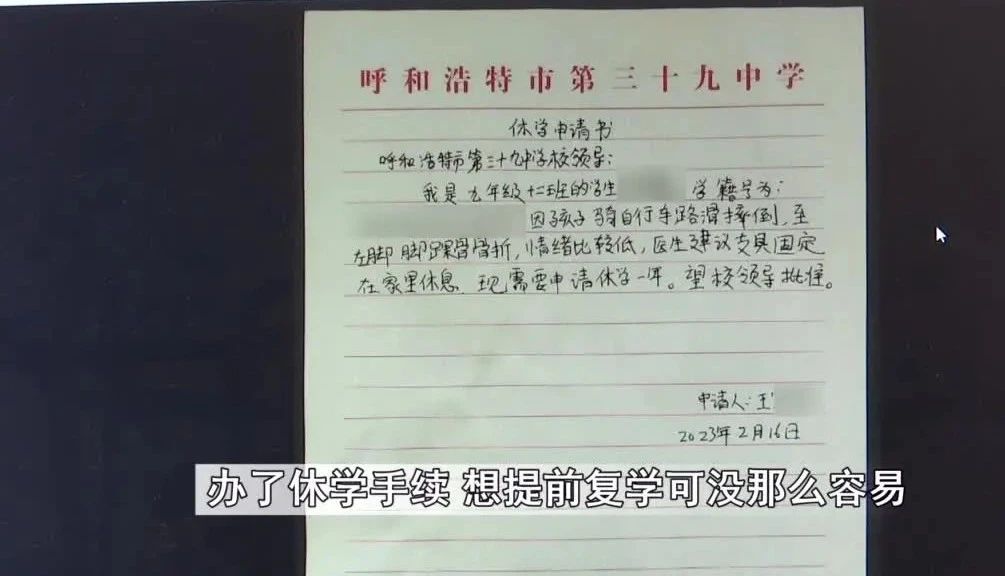 呼和浩特市第三十九中学
休学申请书
呼和浩特市第三十九中学校领导：
我是九年级十二班的学生 学籍号为：
因孩子骑自行车路滑摔倒，至
左脚脚踝骨骨折，情绪比较低，医生建议支具固定
在家里休息，现需要申请休学一年。望校领导批准。
申请人：王
2023年2月16日
办了休学手续 想提前复学可没那么容易